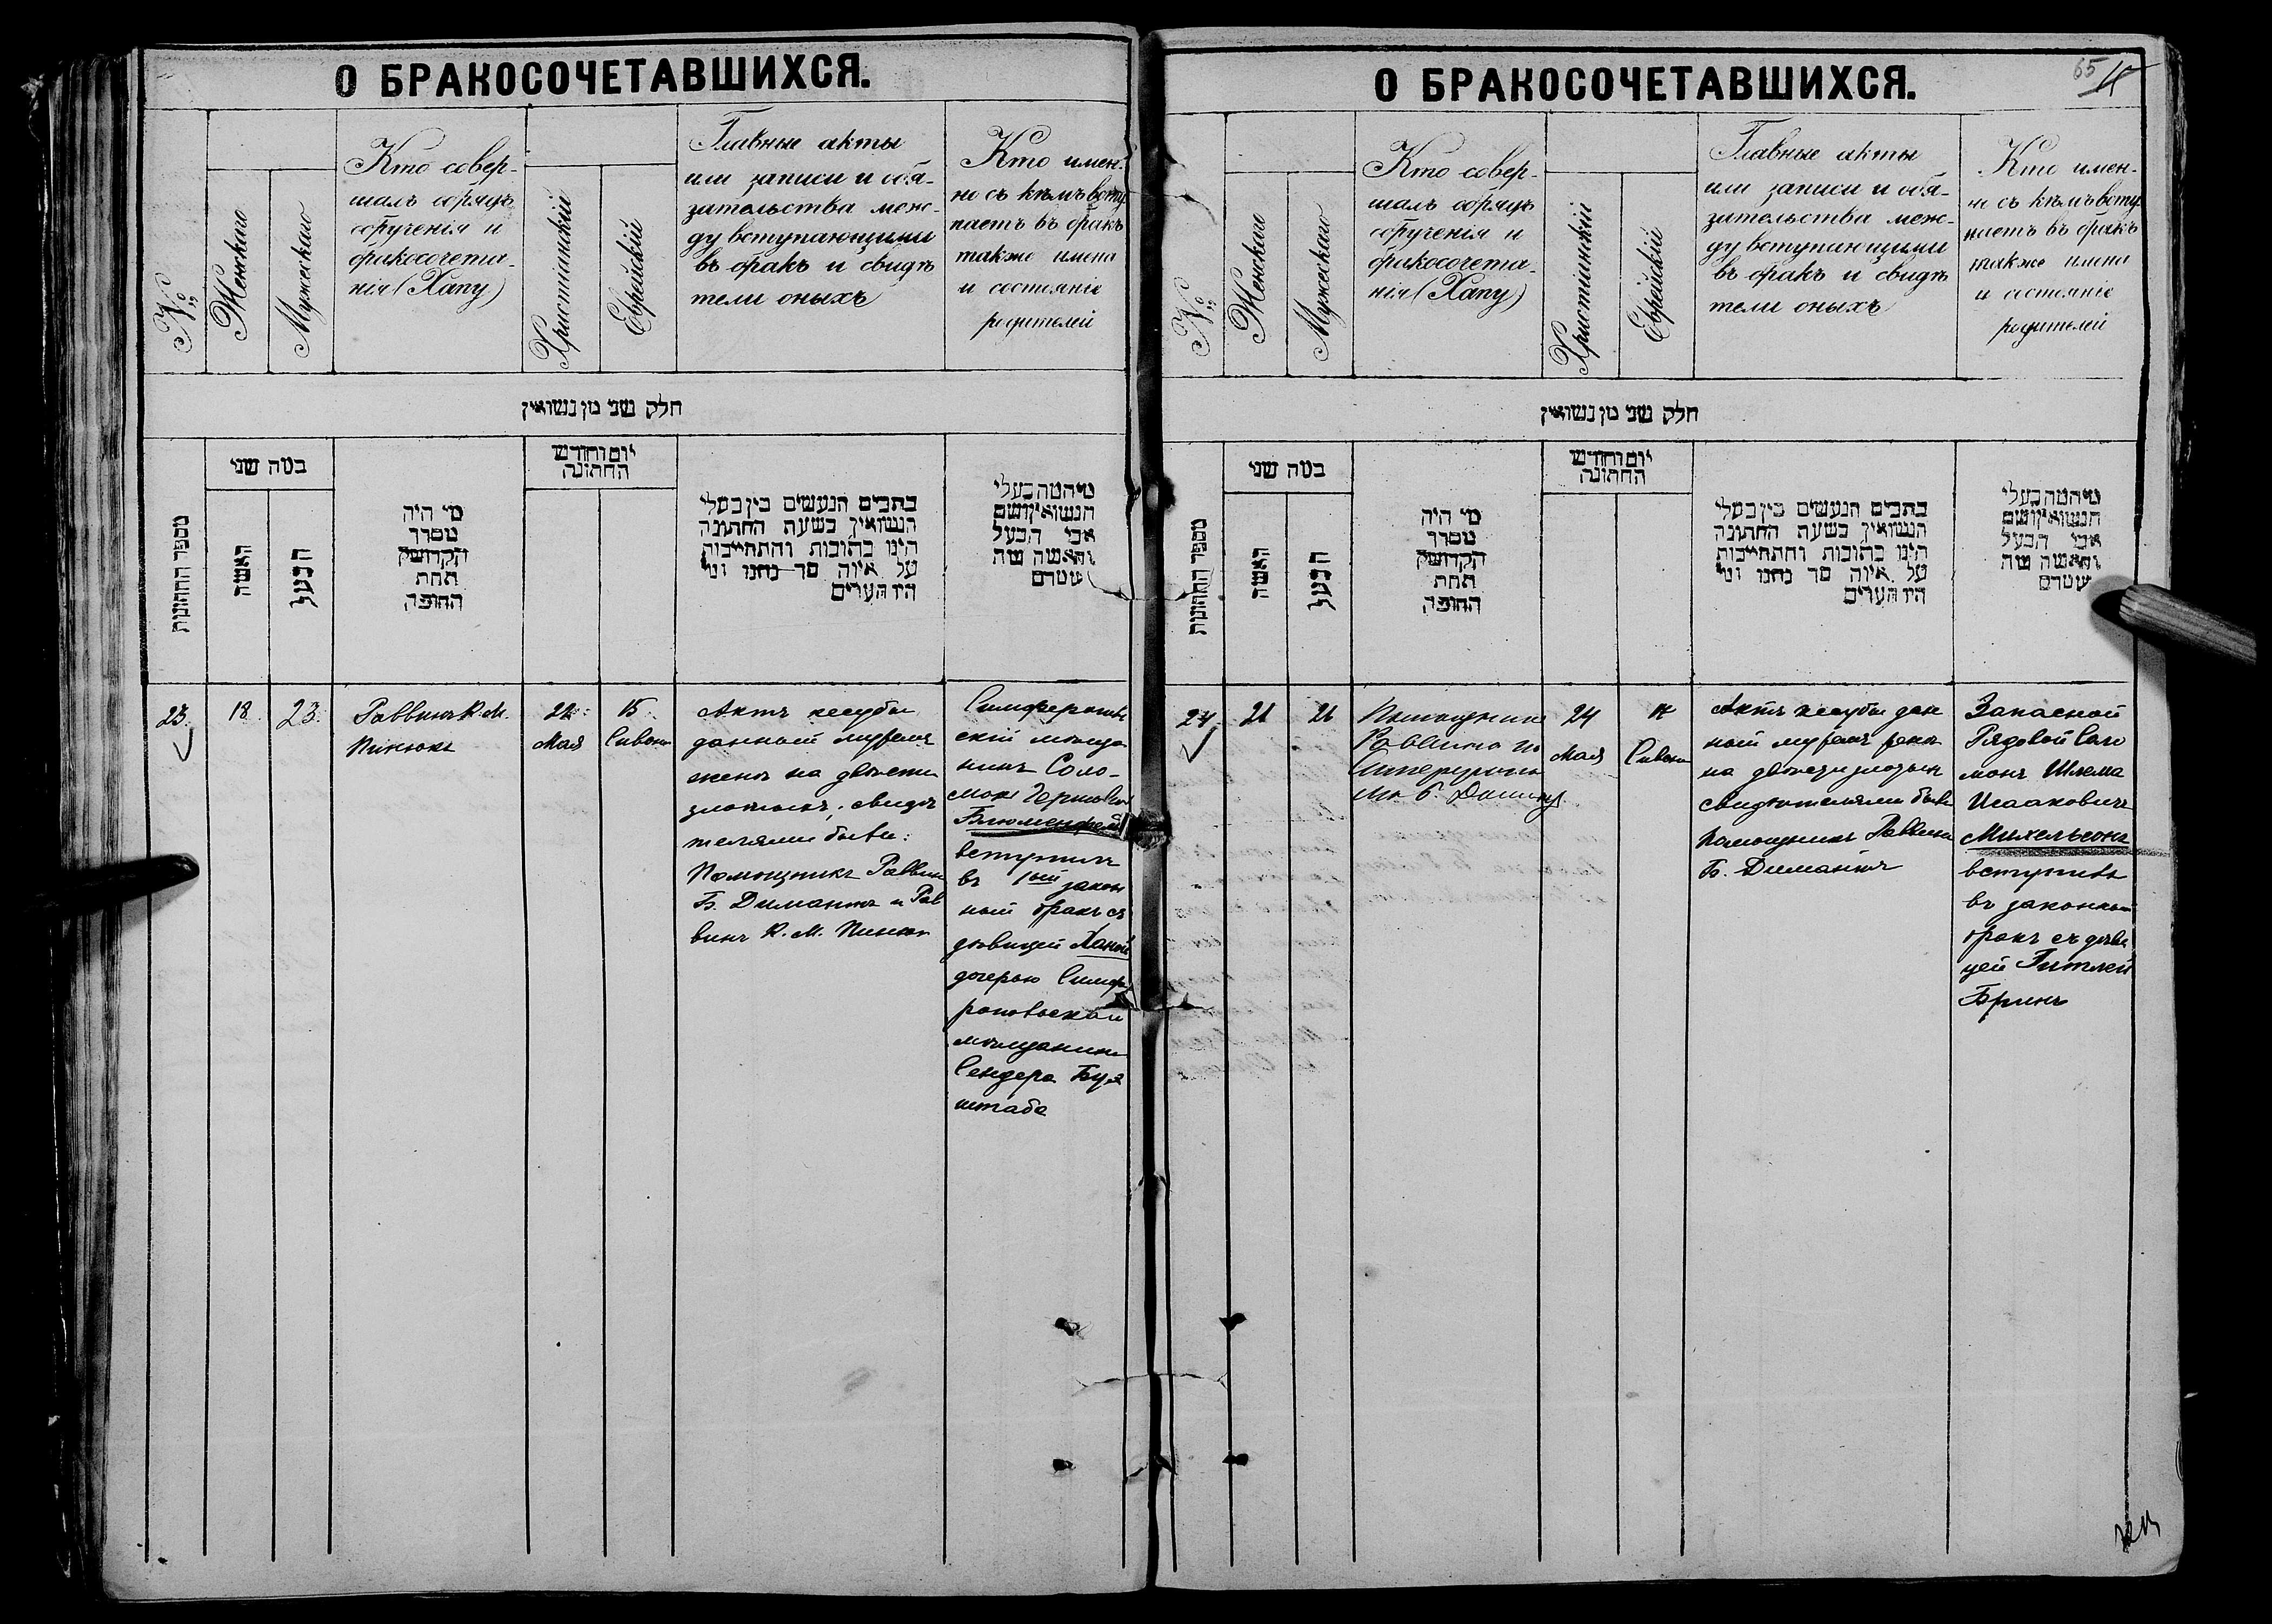 О БРАКОСОЧЕТАВШИХСЯ.
№
Женскаго
Мужескаго
Кто совер-
шалъ обрядъ
обрученія и
бракосочета-
нія (Хапу)
Христіанскій
Еврейскій
Главные акты
или записи и обя-
зательства меж-
ду вступающими
въ бракъ и свидѣ
тели оныхъ
Кто имен-
но съ кѣмъ всту
паетъ въ бракъ
также имена
и состояніе
родителей
חלק שני מן נשואין
מספר החתונות
במה שני
האשה
הבעל
מי היה
מסדר
הקדושין
תחת
החופה
יום וחודש
החתונה
כתבים הנעשים בין בעלי
הנשואין בשעת החתונה
היינו כתובות והתחייבות
על איזה סך נתנו ומי
היו העדים
מי המה בעלי
הנשואין ושם
אבי הבעל
והאשה מה
שמדם
23.
18.
23.
Раввинъ К. М.
Пинюкъ
22.
Мая
15.
Сивонъ
Актъ кесубы
данный мужемъ
женѣ на двѣсти
злотыхъ, свидѣ
телями были:
Помощникъ Раввин
Б. Димантъ и Рав
винъ К. М. Пинюк
Симферополь
скій мѣща
нинъ Соло-
монъ Гершков
Блюменфель
вступилъ
въ 1ый закон
ный бракъ съ
дѣвицей Ханой
дочерью Симфе
ропольскаго
мѣщанина
Сендера Бук
штаба
О БРАКОСОЧЕТАВШИХСЯ.
65
№
Женскаго
Мужескаго
Кто совер-
шалъ обрядъ
обрученія и
бракосочета-
нія (Хапу)
Христіанскій
Еврейскій
Главные акты
или записи и обя-
зательства меж-
ду вступающими
въ бракъ и свидѣ
тели оныхъ
Кто имен-
но съ кѣмъ всту
паетъ въ бракъ
также имена
и состояніе
родителей
חלק שני מן נשואין
מספר החתונות
במה שני
האשה
הבעל
מי היה
מסדר
הקדושין
תחת
החופה
יום וחודש
החתונה
כתבים הנעשים בין בעלי
הנשואין בשעת החתונה
היינו כתובות והתחייבות
על איזה סך נתנו ומי
היו העדים
מי המה בעלי
הנשואין ושם
אבי הבעל
והאשה מה
שמדם
24
21
26
Помощникъ
Раввина
Б. Димант
24
Мая
Сивонъ
Актъ кесубы дан
ный мужемъ женѣ
на двѣсти злотыхъ
свидѣтелями были
помощникъ Раввина
Б. Димантъ
Запасной
Рядовой Соло
монъ Шлема
Исааковичъ
Михельсонъ
вступилъ
въ законный
бракъ съ дѣви
цей Гитлей
Бринъ